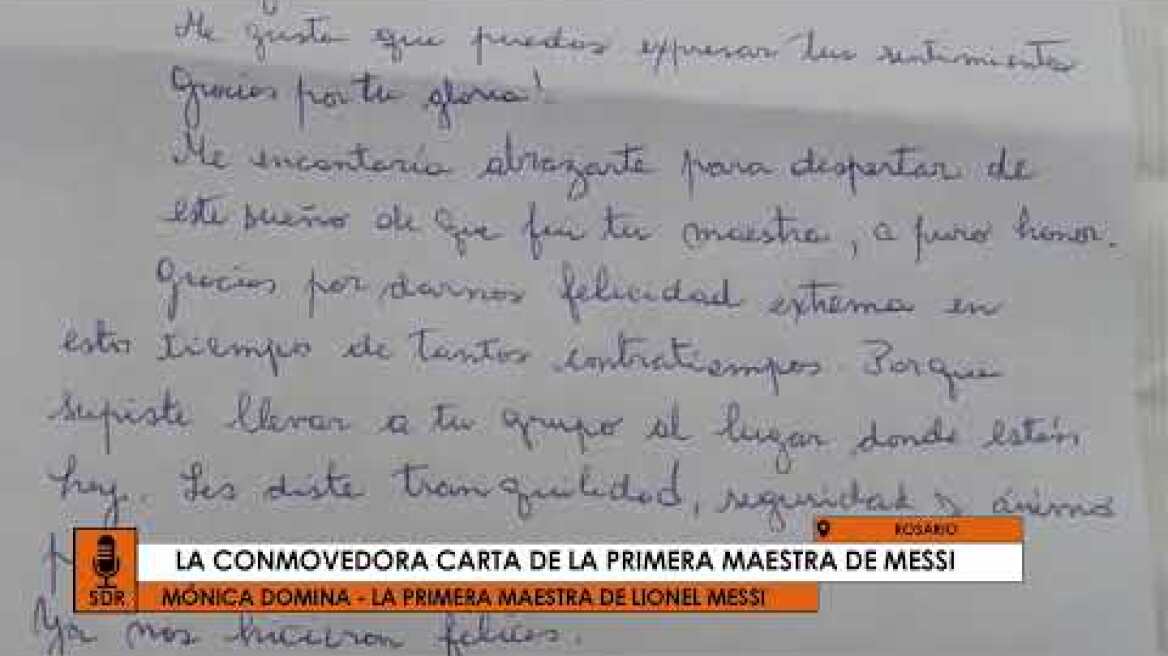 Me gusta que puedas expresar tus sentimientos
Gracias por tu gloria!
Me encantaría abrazarte para despertar de
este sueño de que fui tu maestra, a puro honor.
Gracias por darnos felicidad extrema en
este tiempo de tantos contratiempos. Porque
supiste llevar a tu grupo al lugar donde están
hoy. Les diste tranquilidad, seguridad y ánimo
ROSARIO
LA CONMOVEDORA CARTA DE LA PRIMERA MAESTRA DE MESSI
SDR
MÓNICA DOMINA - LA PRIMERA MAESTRA DE LIONEL MESSI
Ya nos hicieron felices.